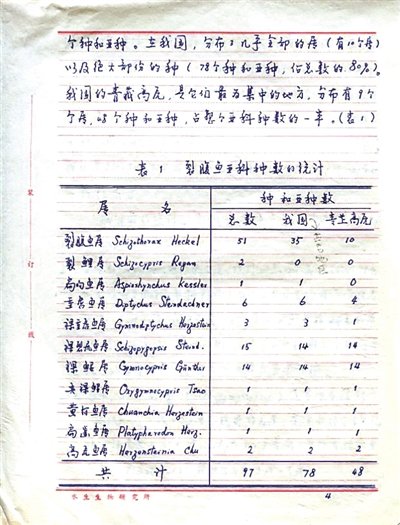 个种和亚种。在我国，分布了几乎全部的属（有10个属）
以及绝大部份的种（78个种和亚种，佔总数的80%）。
我国的青藏高原，是它们最为集中的地方，分布有9个
个属，48个种和亚种，占整个亚科种数的一半。（表1）
表 1 裂腹鱼亚科种数的统计
属 名 种和亚种数
总数 我国 青藏高原
裂腹鱼属 Schizothorax Heckel 51 35 10
裂鲤属 Schizocypris Regan 2 0 0
扁吻鱼属 Aspiorhynchus Kessler 1 1 0
重唇鱼属 Diptychus Steindachner 6 6 4
裸重唇鱼属 Gymnodiptychus Herzenstein 3 3 1
裸裂尻鱼属 Schizopygopsis Steind. 15 14 14
裸鲤属 Gymnocypris Günther 14 14 14
尖裸鲤属 Oxygymnocypris Tsao 1 1 1
黄河鱼属 Chuanchia Herzenstein 1 1 1
扁咽鱼属 Platypharodon Herz. 1 1 1
高原鱼属 Herzensteinia Chu 2 2 2
共 计 97 78 48
水生生物研究所
4
装
订
线